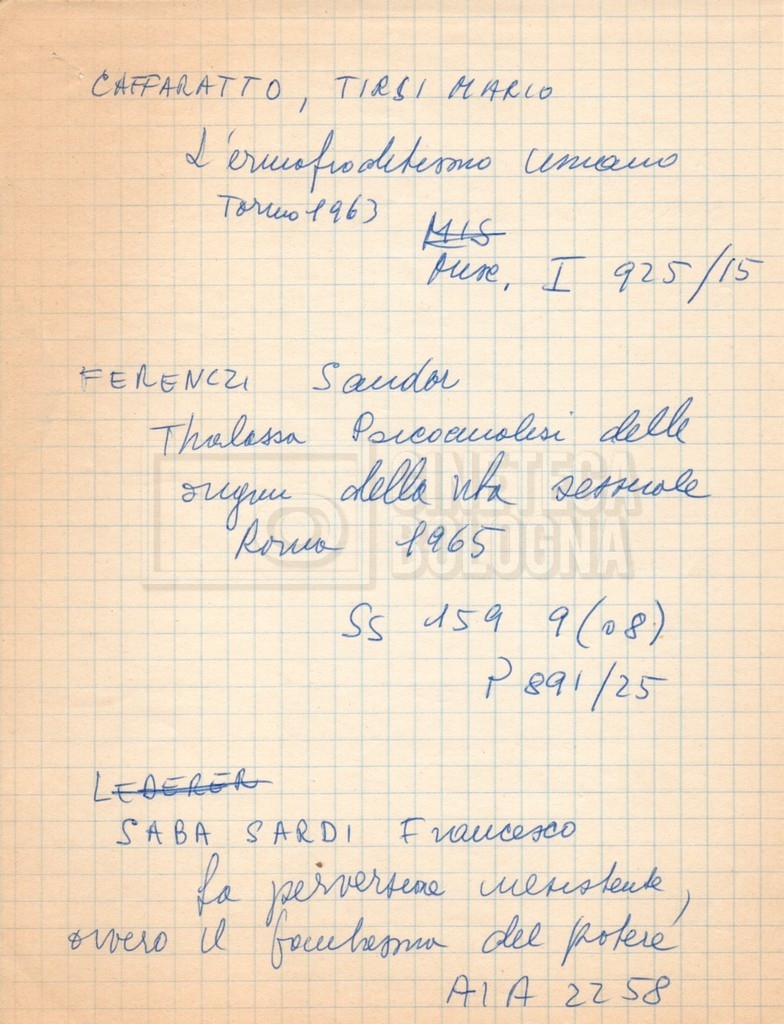 CAFFARATTO, TIRSI MARIO
L'ermafroditismo umano
Torino 1963
MIS
Misc. I 925/15
FERENCZI Sandor
Thalassa Psicoanalisi delle
origini della vita sessuale
Roma 1965
CINETECA
BOLOGNA
SS 159 9(08)
P 891/25
LEDERER
SABA SARDI Francesco
La perversione inesistente,
ovvero il fantasma del potere
A1A 2258